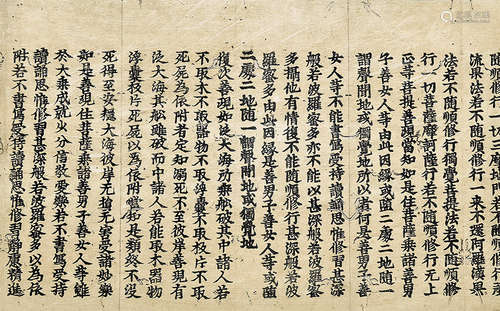 流果法若不隨順修行一來不還阿羅漢果
法若不隨順修行獨覺菩提法若不隨順修
行一切菩薩摩訶薩行若不隨順修行无上
正等菩提善現當知如是住菩薩乘諸善男
子善女人等由此因緣或墮二處二地隨一
謂聲聞地或獨覺地所以者何是善男子善
女人等不能書寫受持讀誦思惟修習甚深
般若波羅蜜多亦不能以甚深般若波羅蜜
多攝他有情復不能隨順修行甚深般若波
羅蜜多由此因緣是善男子善女人等或墮
二處二地隨一謂聲聞地或獨覺地
復次善現如泛大海所乘船破其中諸人若
不取木不取器物不取浮囊不取板片不取
死屍為依附者定知溺死不至彼岸善現有
泛大海其船雖破而中諸人若能取木器物
浮囊板片死屍以為依附當知是類終不沒
死得至安隱大海彼岸无損无害受諸妙樂
如是善現住菩薩乘諸善男子善女人等雖
於大乘成就少分信敬愛樂若不書寫受持
讀誦思惟修習甚深般若波羅蜜多以為依
附若不書寫受持讀誦思惟修習靜慮精進